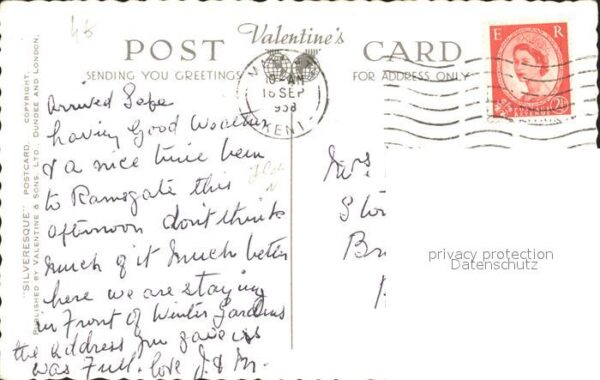 46
Valentine's
POST CARD
SENDING YOU GREETINGS
FOR ADDRESS ONLY
10 AM
16 SEP
1958
KENT
E R
POSTAGE
REVENUE
2½D
Arrived Safe
having Good Weather
& a nice time been
to Ramsgate this
afternoon don't think
much of it much better
here we are staying
in Front of Winter Gardens
the address you gave us
was Full. love J. & M.
Mrs
Sto
Br
privacy protection
Datenschutz
"SILVERESQUE" POSTCARD. COPYRIGHT.
PUBLISHED BY VALENTINE & SONS, LTD., DUNDEE AND LONDON.